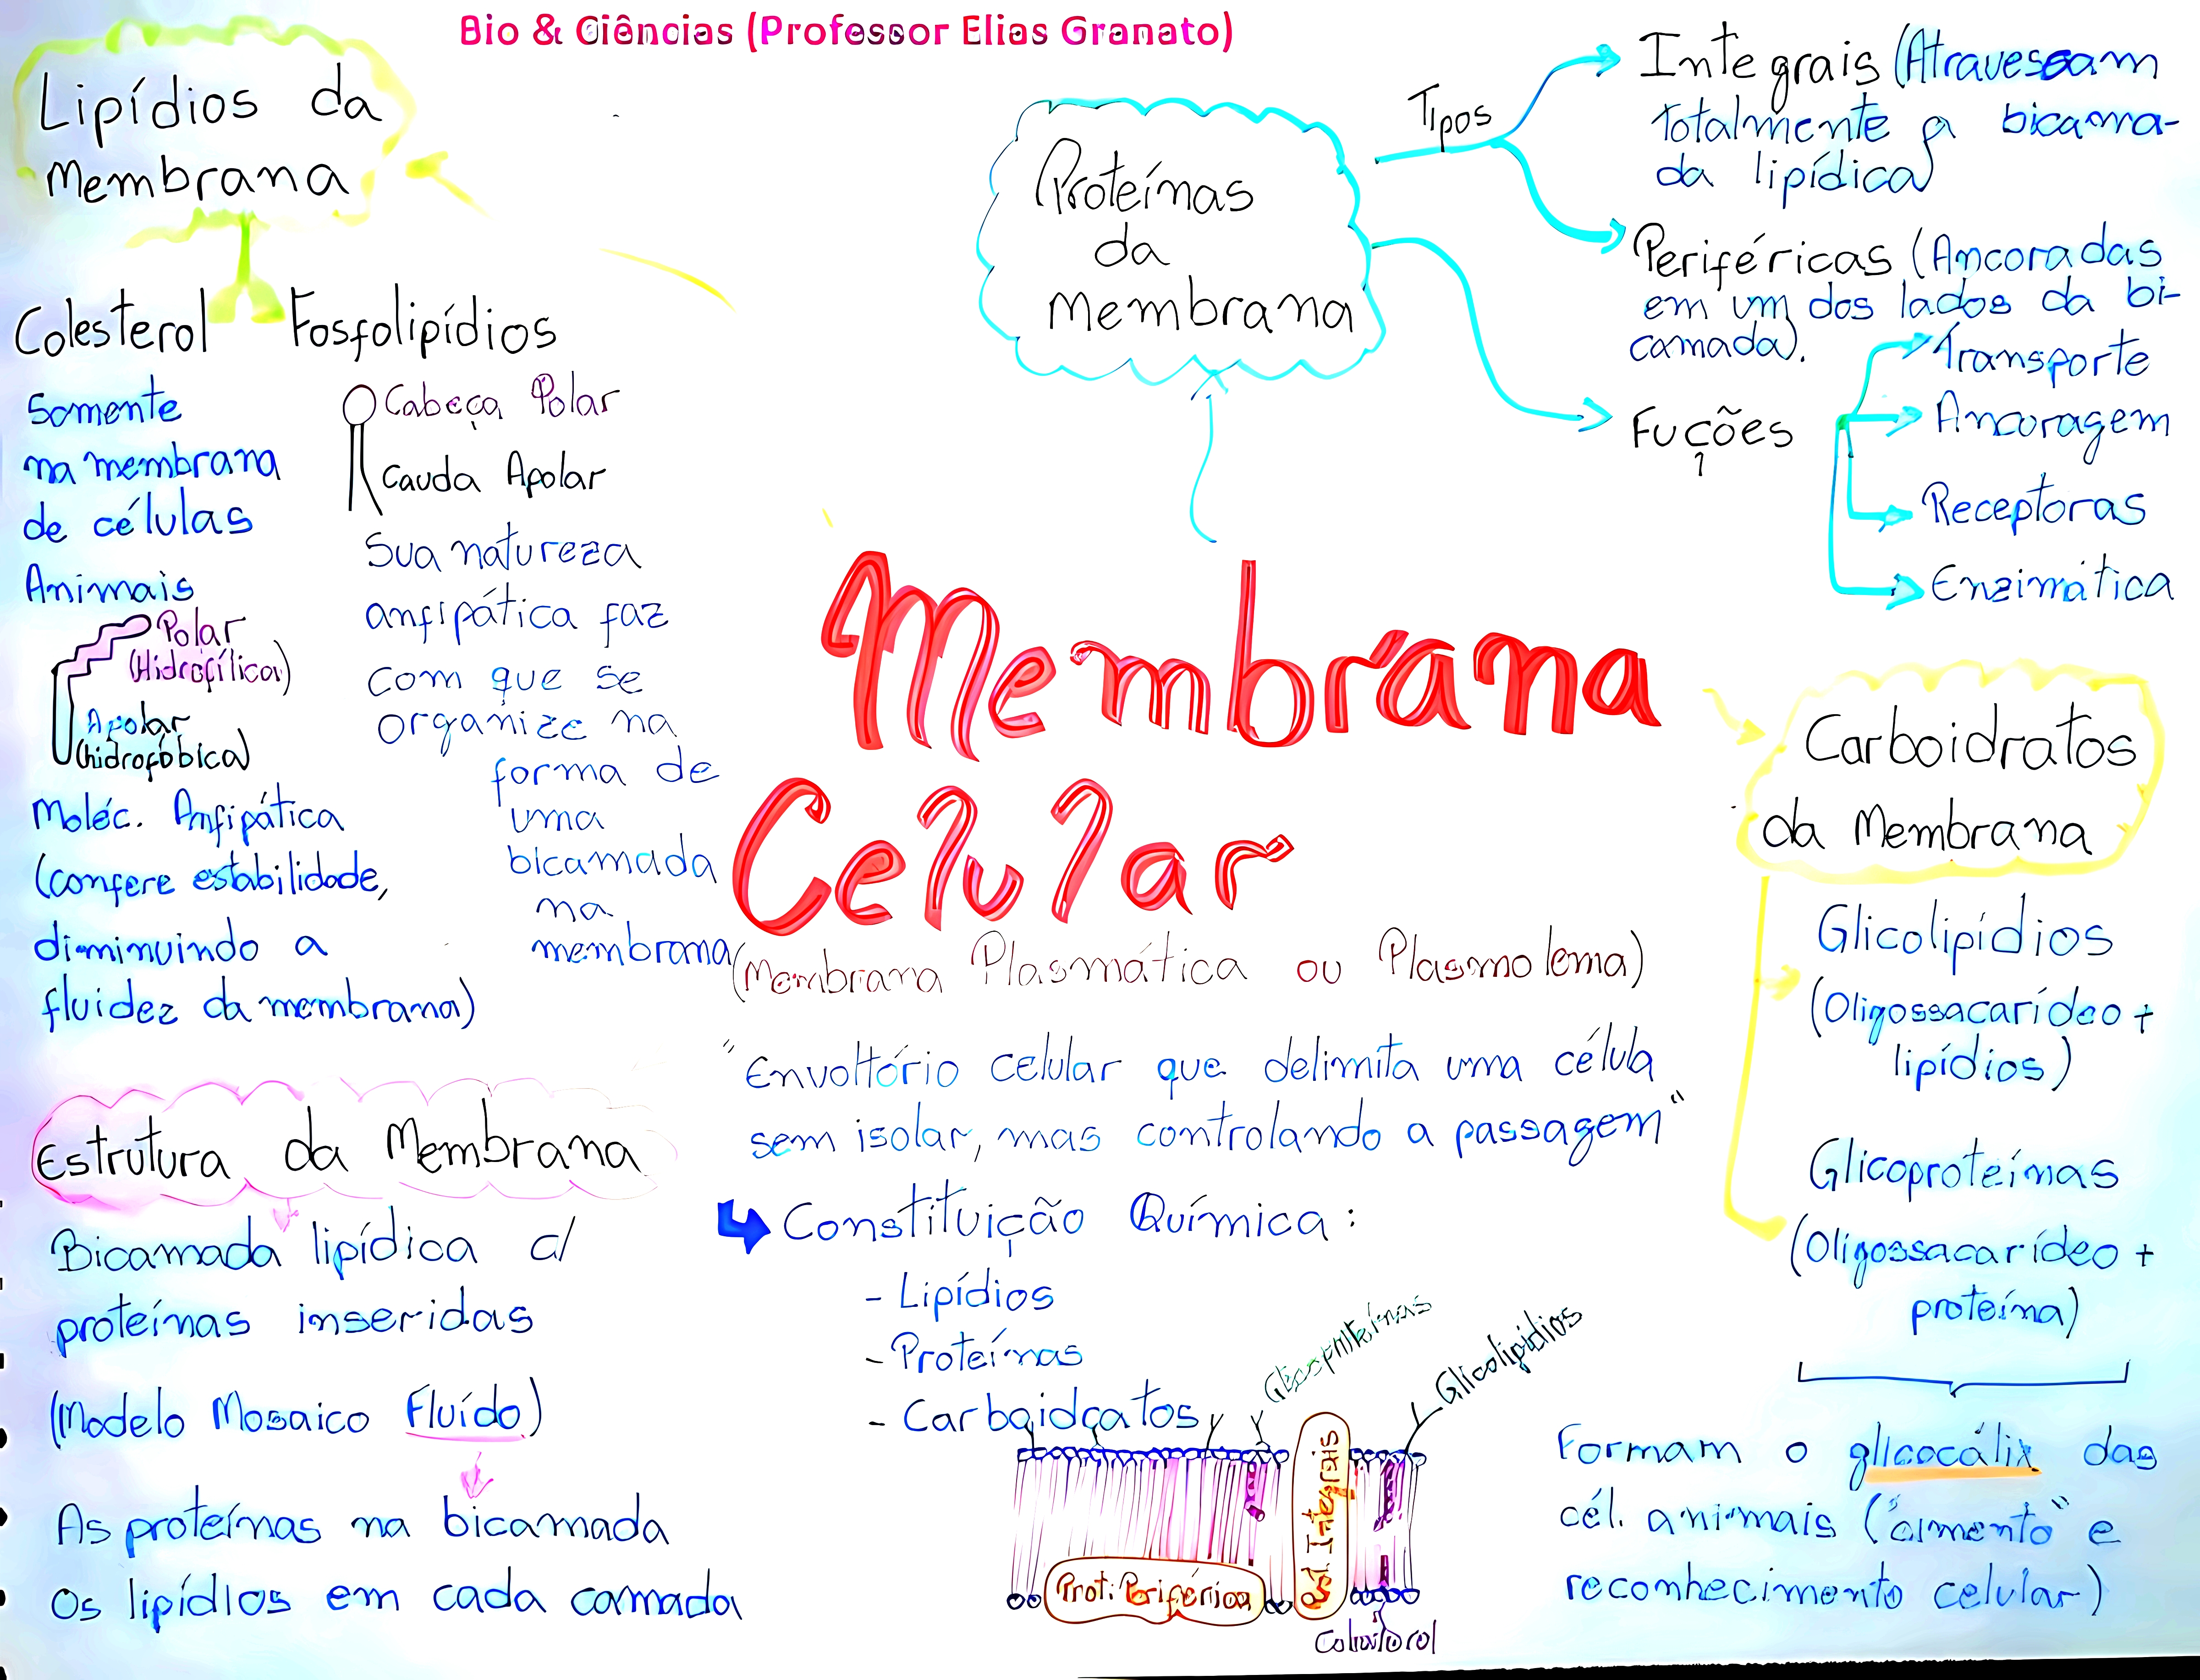 Bio & Ciências (Professor Elias Granato)
Lipídios da
Membrana
Colesterol
Somente
na membrana
de células
Animais
Polar
(Hidrofílica)
Apolar
(hidrofóbica)
Moléc. Anfipática
(confere estabilidade,
diminuindo a
fluidez da membrana)
Fosfolipídios
Cabeça Polar
Cauda Apolar
Sua natureza
anfipática faz
com que se
organize na
forma de
uma
bicamada
na
membrana
Estrutura da Membrana
Bicamada lipídica c/
proteínas inseridas
(Modelo Mosaico Fluído)
As proteínas na bicamada
Os lipídios em cada camada
Proteínas
da
membrana
Tipos
Integrais (Atravessam
totalmente a bicama-
da lipídica)
Periféricas (Ancoradas
em um dos lados da bi-
camada).
Fuções
Transporte
Ancoragem
Receptoras
Enzimática
Membrana
Celular
(Membrana Plasmática ou Plasmolema)
"Envoltório celular que delimita uma célula
sem isolar, mas controlando a passagem"
Constituição Química:
- Lipídios
- Proteínas
- Carboidratos
Glicoproteínas
Glicolipídios
Prot. Integrais
Prot. Periférica
Colesterol
Carboidratos
da Membrana
Glicolipídios
(Oligossacarídeo +
lipídios)
Glicoproteínas
(Oligossacarídeo +
proteína)
Formam o glicocálix das
cél. animais ("cimento" e
reconhecimento celular)